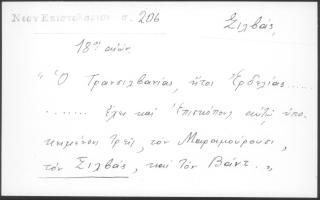 Νεον Επιστολαριον σ. 206
Σιλβάς,
18ου αιών.
"Ὁ Τρανσιλβανίας, ἤτοι Ἐρδελίας......
....... ἔχει καὶ Ἐπισκόπους αὐτῷ ὑπο-
κειμένους τρεῖς, τὸν Μαραμούρουσι,
τὸν Σιλβάς, καὶ τὸν Βάντ..,